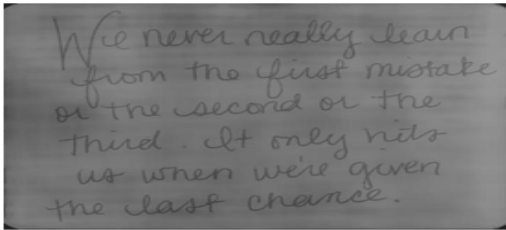 We never really learn
from the first mistake
or the second or the
third. It only hits
us when we're given
the last chance.